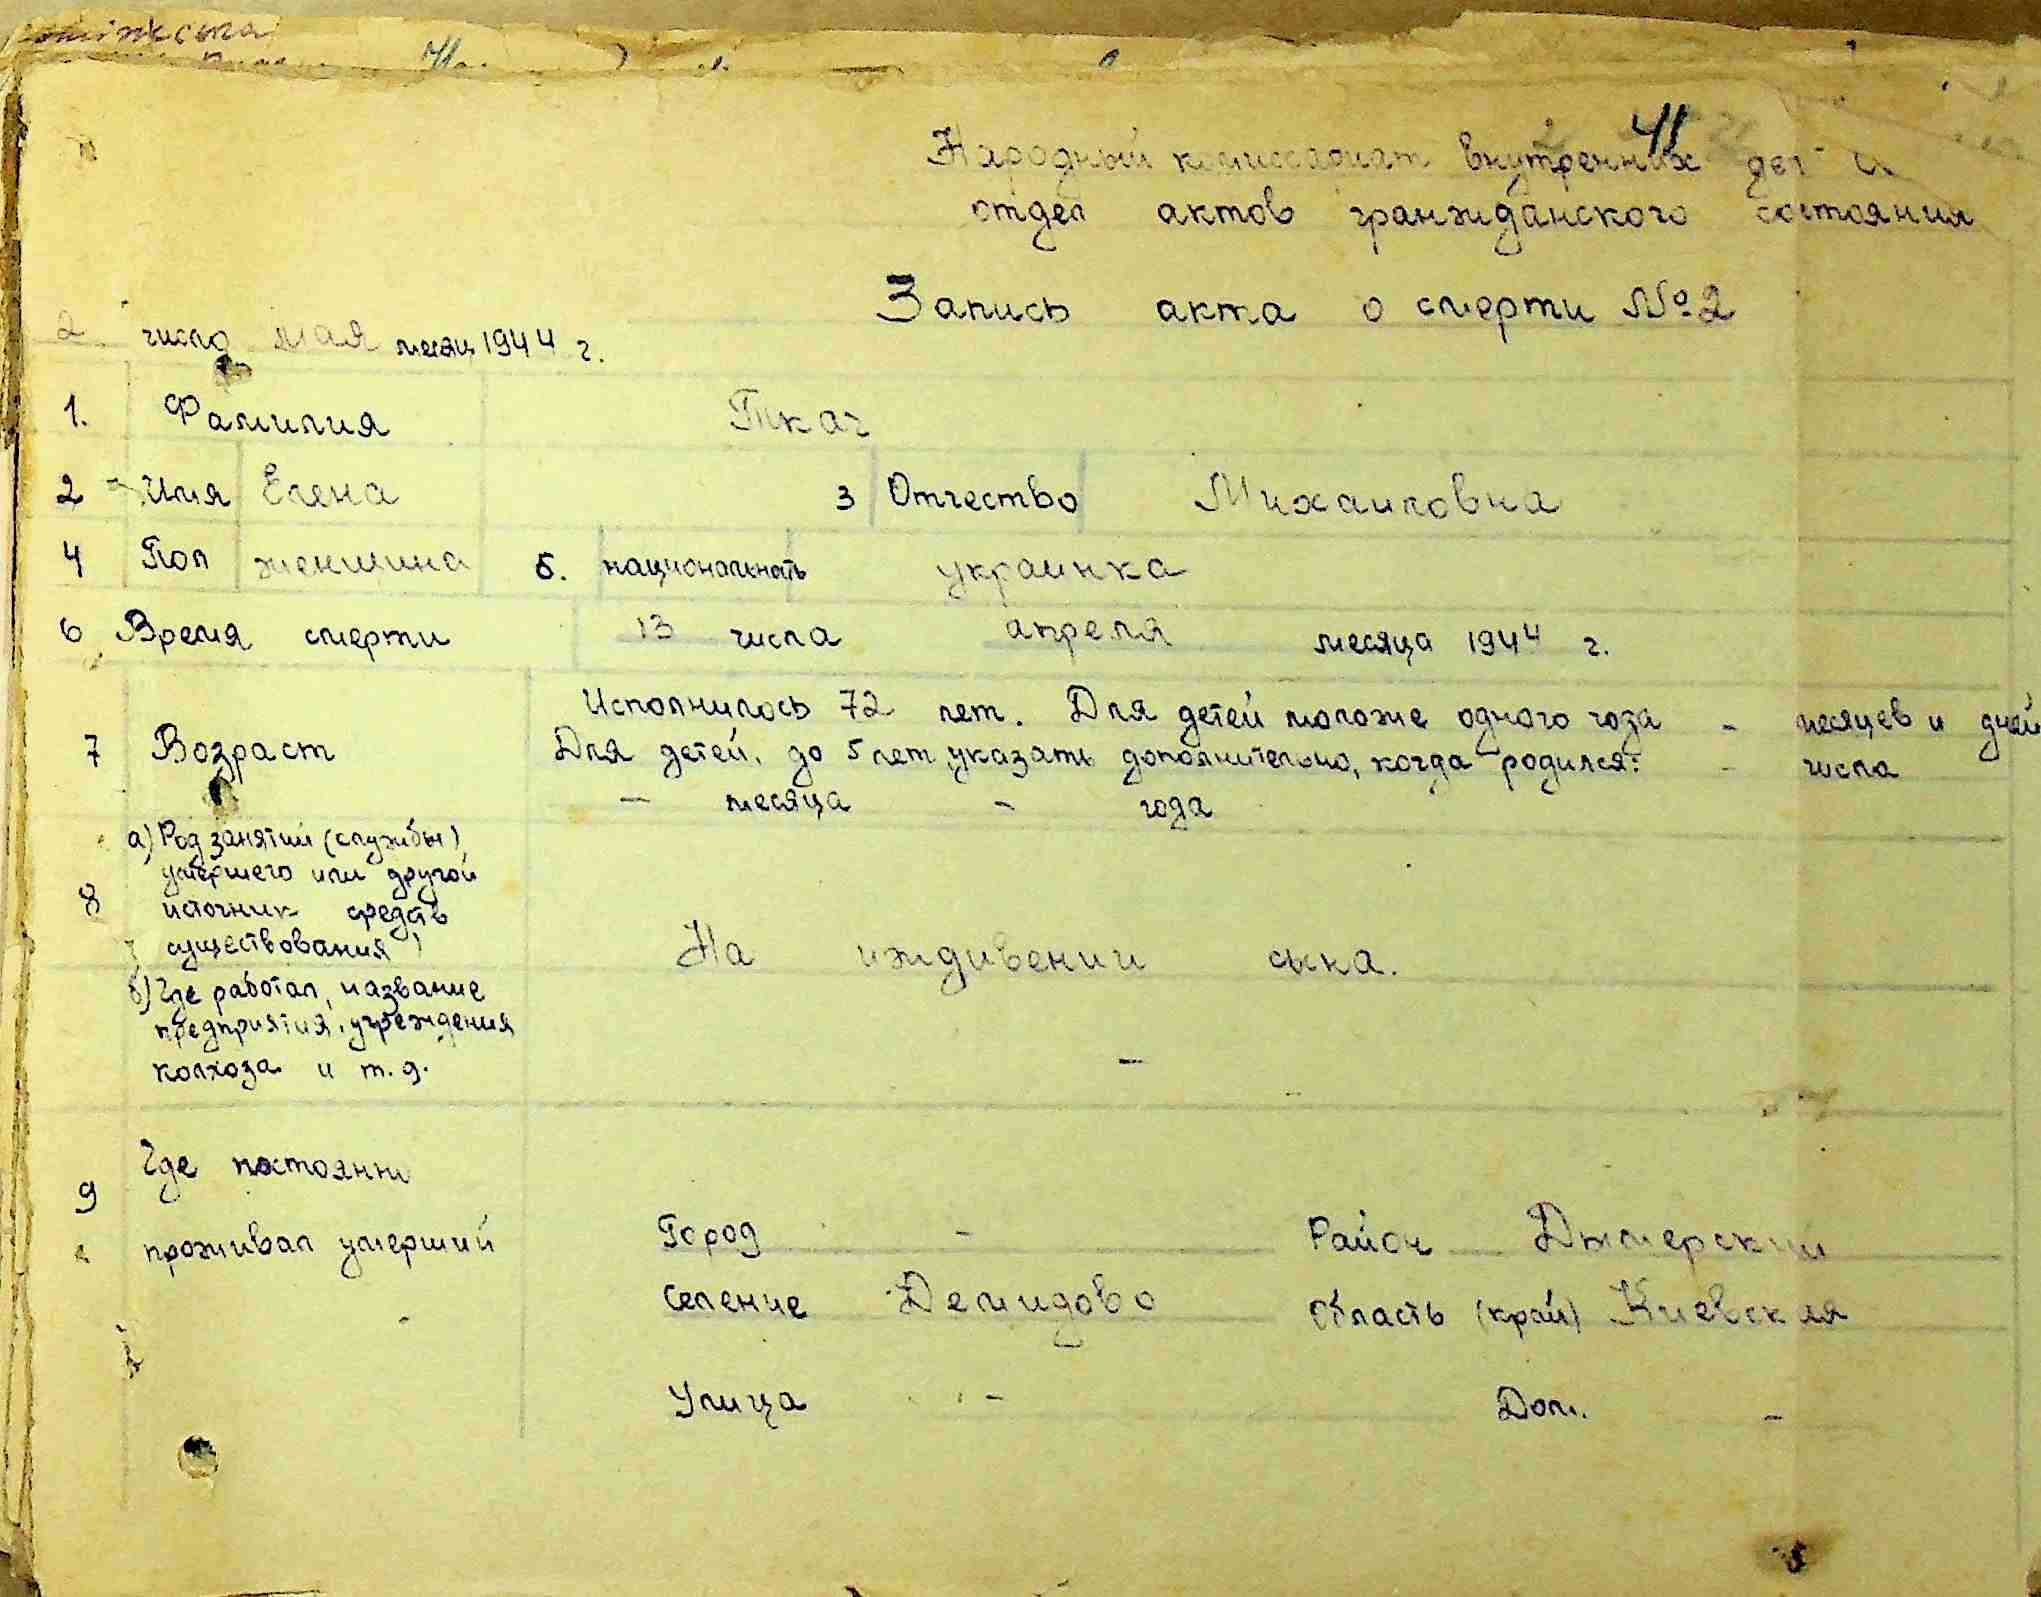 41
Народный комиссариат внутренних дел
отдел актов гранжданского состояния
Запись акта о смерти №2
2 число мая месяц 1944 г.
1. Фамилия Ткач
2 Имя Елена 3 Отчество Михаиловна
4 Пол женщина 5. национальность украинка
6 Время смерти 13 числа апреля месяца 1944 г.
Исполнилось 72 лет. Для детей моложе одного года - месяцев и дней
7 Возраст Для детей, до 5 лет указать дополнительно, когда родился: - числа
- месяца - года
а) Род занятий (службы)
умершего или другой
8 источник средств
существования) На иждивении сына.
б) Где работал, название
предприятия, учреждения
колхоза и т.д. -
Где постоянно
9
проживал умерший Город - Район Дымерский
Селение Демидово Область (край) Киевская
Улица - Дом. -